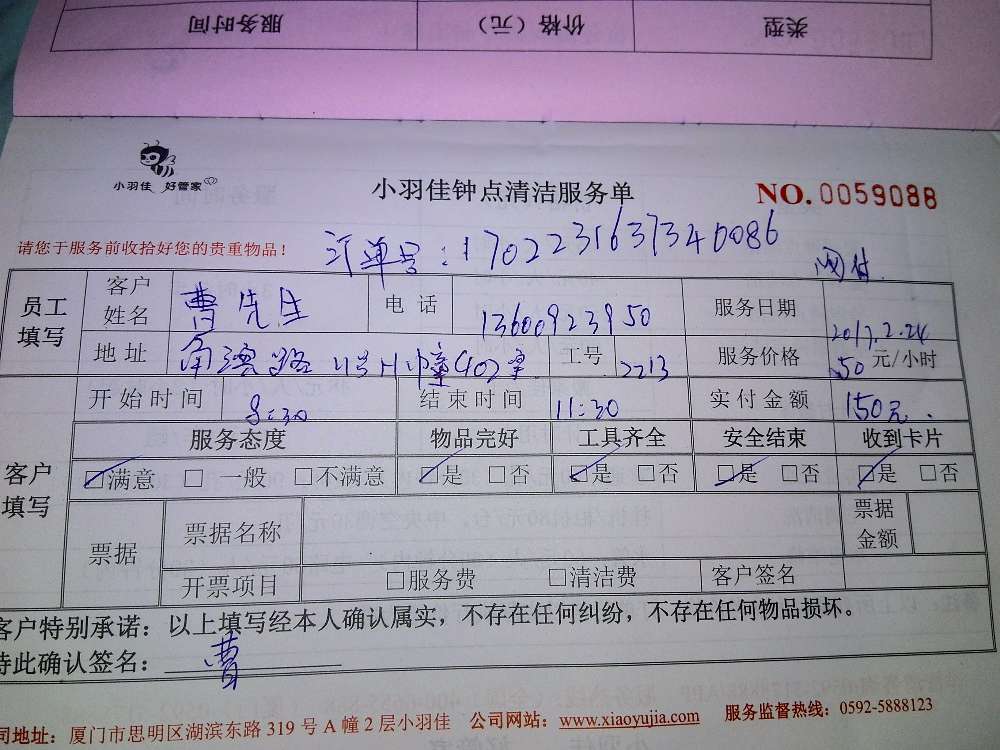 服务时间 价格（元） 类型
小羽佳 好管家
小羽佳钟点清洁服务单
NO.0059088
请您于服务前收拾好您的贵重物品！
订单号：1702231637340086
网付.
员工填写 客户姓名 曹先生 电话 13600923950 服务日期 2017.2.24
地址 路 11号H幢402室 工号 2213 服务价格 50元/小时
开始时间 8:30 结束时间 11:30 实付金额 150元.
客户填写 服务态度 物品完好 工具齐全 安全结束 收到卡片
☑满意 □一般 □不满意 ☑是 □否 ☑是 □否 ☑是 □否 ☑是 □否
票据 票据名称 票据金额
开票项目 □服务费 □清洁费 客户签名
客户特别承诺：以上填写经本人确认属实，不存在任何纠纷，不存在任何物品损坏。
特此确认签名：曹
司地址：厦门市思明区湖滨东路319号A幢2层小羽佳 公司网站：www.xiaoyujia.com 服务监督热线：0592-5888123